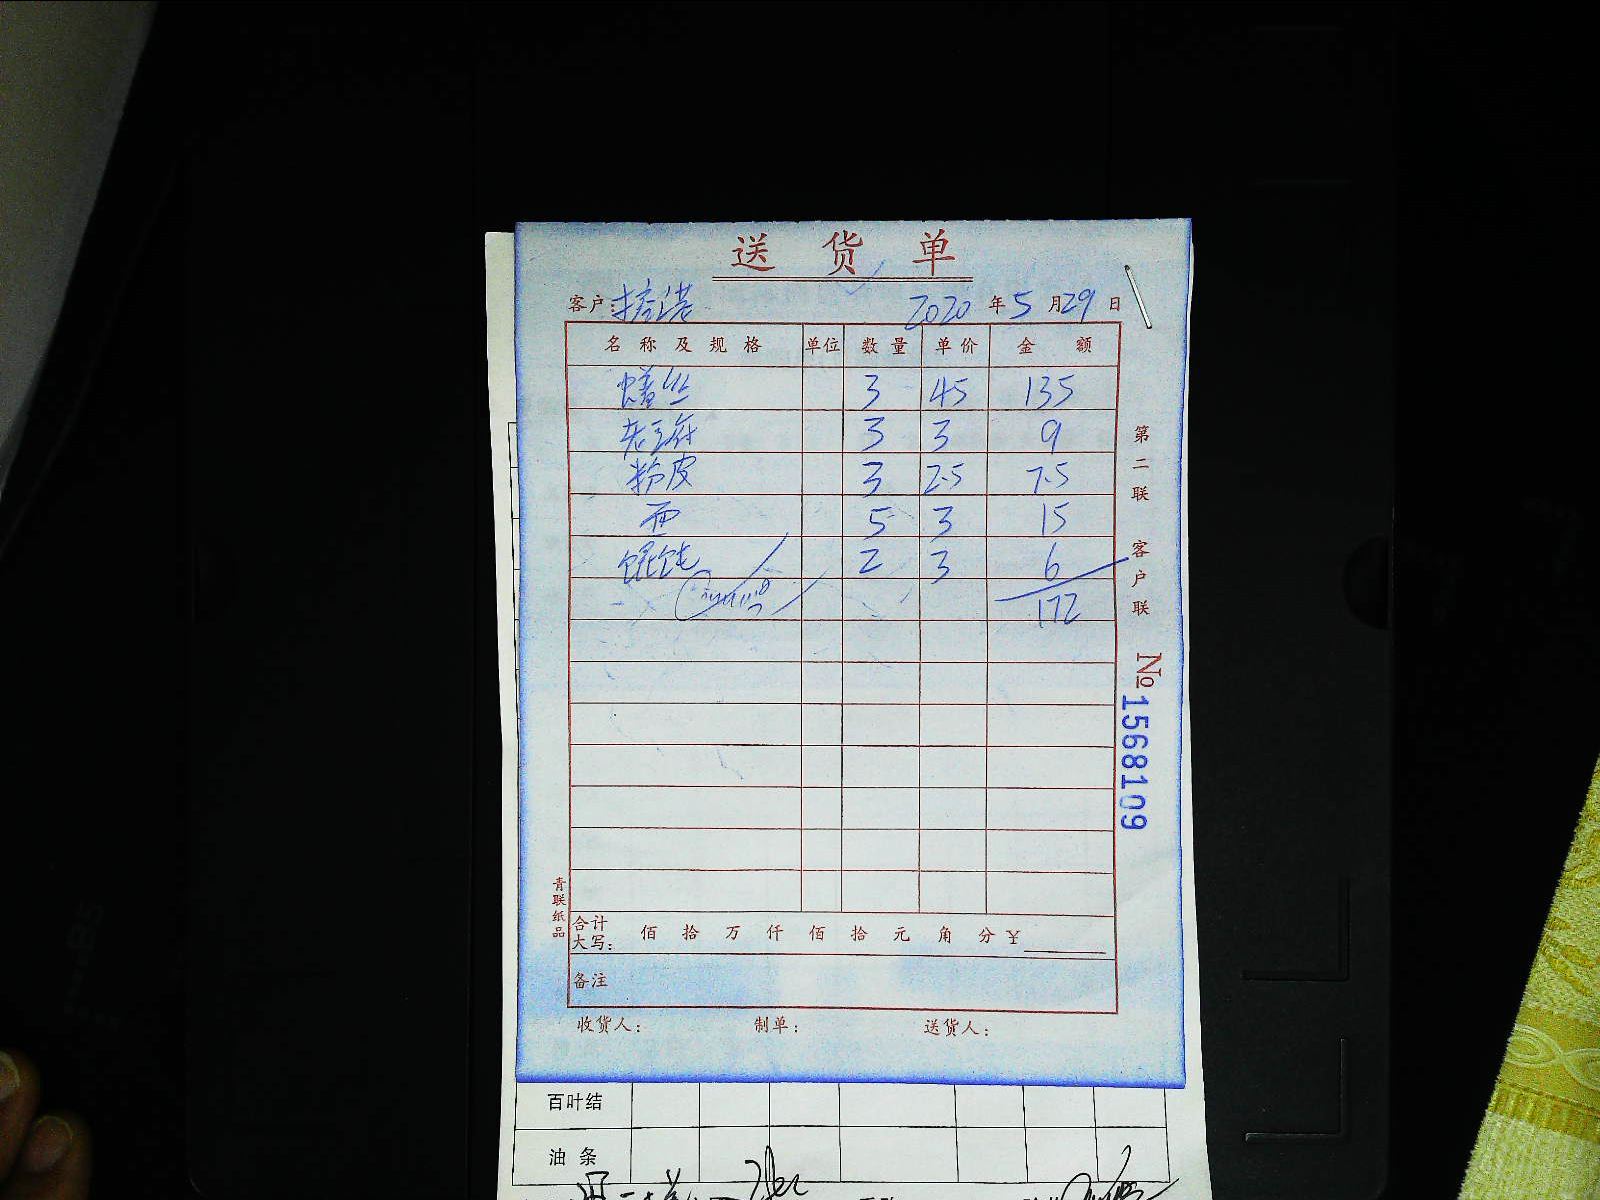 送货单
客户: 2020年5月29日
名称及规格 单位 数量 单价 金额
鳝丝 3 45 135
3 3 9
粉皮 3 2.5 7.5
面 5 3 15
馄饨 2 3 6
172
第二联 客户联
№1568109
青联纸品
合计大写: 佰 拾 万 仟 佰 拾 元 角 分 ¥
备注
收货人: 制单: 送货人:
百叶结
油条